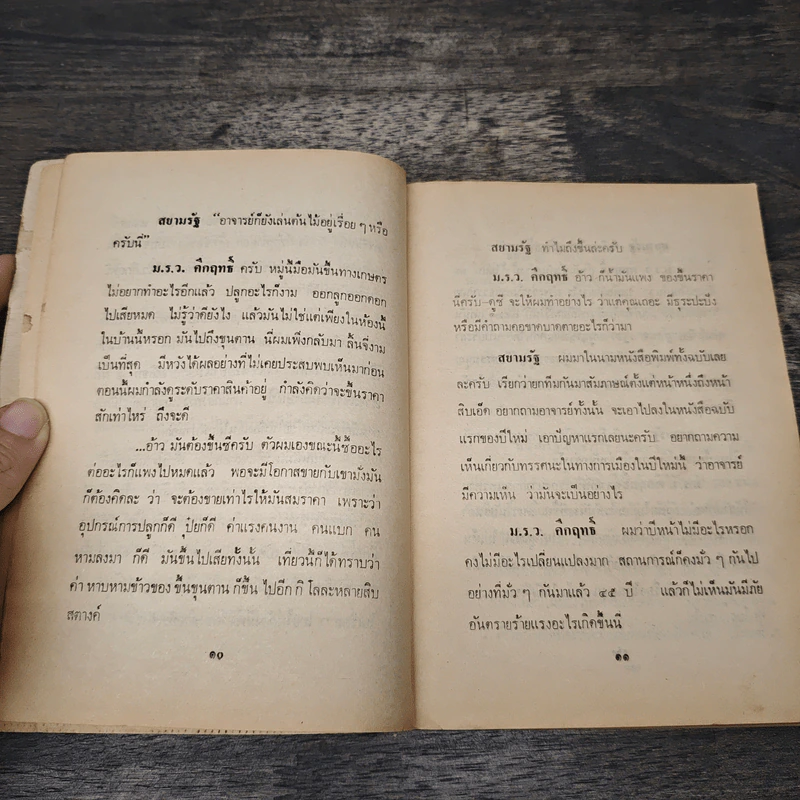 สยามรัฐ “อาจารย์ก็ยังเล่นต้นไม้อยู่เรื่อย ๆ หรือ
ครับนี่”
ม.ร.ว. คึกฤทธิ์ ครับ หมู่นี้มือมันขึ้นทางเกษตร
ไม่อยากทำอะไรอีกแล้ว ปลูกอะไรก็งาม ออกลูกออกดอก
ไปเสียหมด ไม่รู้ว่าดียังไง แล้วมันไม่ใช่แต่เพียงในห้องนี้
ในบ้านนี้หรอก มันไปถึงขุนตาน นี่ผมเพิ่งกลับมา ลิ้นจี่งาม
เป็นที่สุด มีหวังได้ผลอย่างที่ไม่เคยประสบพบเห็นมาก่อน
ตอนนี้ผมกำลังดูระดับราคาสินค้าอยู่ กำลังคิดว่าจะขึ้นราคา
สักเท่าไหร่ ถึงจะดี
...อ้าว มันต้องขึ้นซีครับ ตัวผมเองขณะนี้ซื้ออะไร
ต่ออะไรก็แพงไปหมดแล้ว พอจะมีโอกาสขายกับเขามั่งมัน
ก็ต้องคิดละ ว่า จะต้องขายเท่าไรให้มันสมราคา เพราะว่า
อุปกรณ์การปลูกก็ดี ปุ๋ยก็ดี ค่าแรงคนงาน คนแบก คน
หามลงมา ก็ดี มันขึ้นไปเสียทั้งนั้น เที่ยวนี้ก็ได้ทราบว่า
ค่า หาบหามข้าวของ ขึ้นขุนตาน ก็ขึ้น ไปอีก กิ โลละหลายสิบ
สตางค์
๑๐
สยามรัฐ ทำไมถึงขึ้นล่ะครับ
ม.ร.ว. คึกฤทธิ์ อ้าว ก็น้ำมันแพง ของขึ้นราคา
นี่ครับ-ดูซี จะให้ผมทำอย่างไร ว่าแต่คุณเถอะ มีธุระปะปัง
หรือมีคำถามคอขาดบาดตายอะไรก็ว่ามา
สยามรัฐ ผมมาในนามหนังสือพิมพ์ทั้งฉบับเลย
ละครับ เรียกว่ายกทีมกันมาสัมภาษณ์ตั้งแต่หน้าหนึ่งถึงหน้า
สิบเอ็ด อยากถามอาจารย์ทั้งนั้น จะเอาไปลงในหนังสือฉบับ
แรกของปีใหม่ เอาปัญหาแรกเลยนะครับ อยากถามความ
เห็นเกี่ยวกับทรรศนะในทางการเมืองในปีใหม่นี้ ว่าอาจารย์
มีความเห็น ว่ามันจะเป็นอย่างไร
ม.ร.ว. คึกฤทธิ์ ผมว่าปีหน้าไม่มีอะไรหรอก
คงไม่มีอะไรเปลี่ยนแปลงมาก สถานการณ์ก็คงมั่ว ๆ กันไป
อย่างที่มั่ว ๆ กันมาแล้ว ๔๕ ปี แล้วก็ไม่เห็นมันมีภัย
อันตรายร้ายแรงอะไรเกิดขึ้นนี่
๑๑